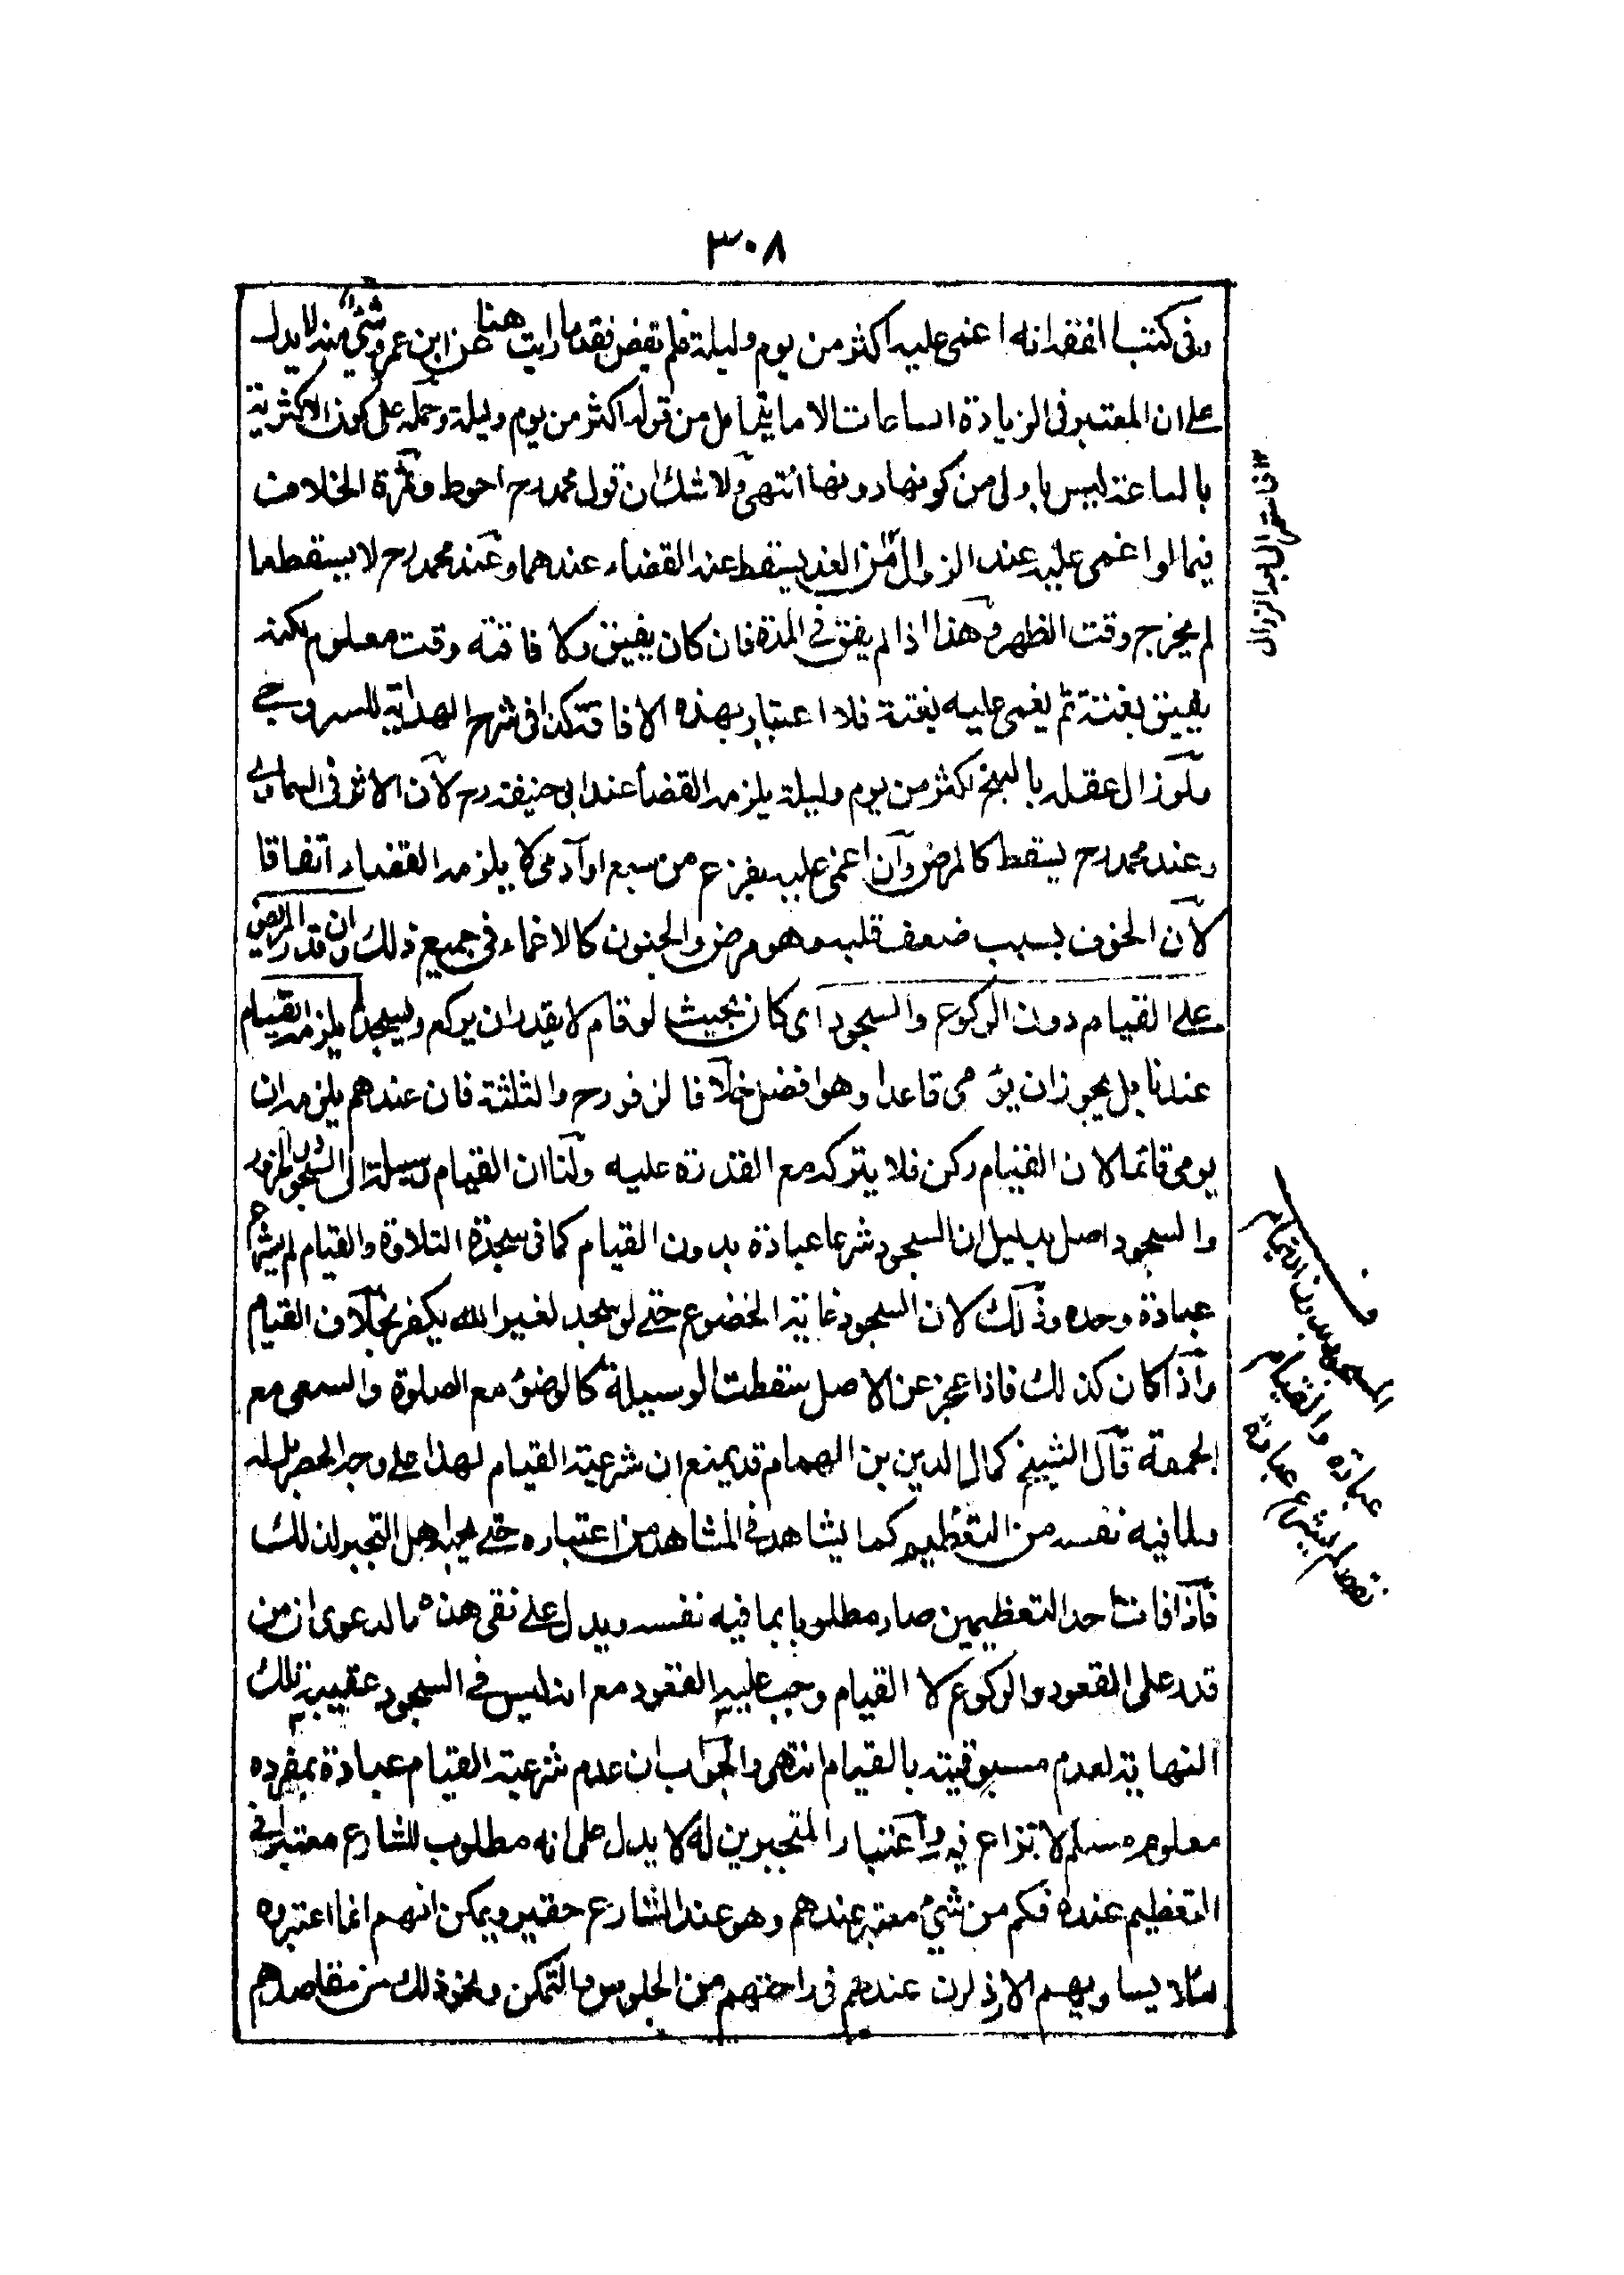 ٣٠٨
وفى كتب الفقه انه اغمى عليه اكثر من يوم وليلة فلم يقض فقد رايت ما هنا عن ابن عمر وشئ منه لا يدل
على ان المعتبر فى الزيادة الساعات الا ما يتخايل من قوله اكثر من يوم وليلة وحمله على كون الاكثرية
بالساعة ليس باولى من كونها دونها انتهى ولا شك ان قول محمد رح احوط وثمرة الخلاف
فيما لو اغمى عليه عند الزوال من الغد يسقط عنه القضاء عندهما وعند محمد رح لا يسقط ما
لم يخرج وقت الظهر وهذا اذا لم يفق فى المدة فان كان يفيق ولا فاقته وقت معلوم لكنه
يفيق بغتة ثم يغمى عليه بغتة فلا اعتبار بهذه الافاقة كذا فى شرح الهداية للسروجى
ولو زال عقله بالبنج اكثر من يوم وليلة يلزمه القضأ عند ابى حنيفة رح لان الاثر فى السماوى
وعند محمد رح يسقط كالمرض وان اغمى عليه بفزع من سبع او آدمى لا يلزمه القضاء اتفاقا
لان الخوف بسبب ضعف قلبه وهو مرض والجنون كالاغماء فى جميع ذلك وان قدر المريض
على القيام دون الركوع والسجود اى كان بحيث لو قام لا يقدر ان يركع ويسجد لم يلزمه القيام
عندنا بل يجوز ان يؤمى قاعدا وهو افضل خلافا لزفر رح والثلثة فان عندهم يلزمه ان
يومى قائما لان القيام ركن فلا يتركه مع القدرة عليه ولنا ان القيام وسيلة الى السجود للخرور
والسجود اصل بدليل ان السجود شرعا عبادة بدون القيام كما فى سجدة التلاوة والقيام لم يشرع
عبادة وحده وذلك لان السجود غاية الخضوع حتى لو سجد لغير الله يكفر بخلاف القيام
واذا كان كذلك فاذا عجز عن الاصل سقطت الوسيلة كالوضوء مع الصلوة والسعى مع
الجمعة قال الشيخ كمال الدين بن الهمام قد يمنع ان شرعية القيام لهذا على وجه الحصر بل له
ولما فيه نفسه من التعظيم كما يشاهد فى المشاهد من اعتباره حتى يحبه اهل التجبر لذلك
فاذا فات احد التعظيمين صار مطلوبا بما فيه نفسه ويدل على نفى هذه الدعوى ان من
قدر على القعود والركوع لا القيام وجب عليه القعود مع انه ليس فى السجود عقيبه تلك
النهاية لعدم مسبوقيته بالقيام انتهى والجواب ان عدم شرعية القيام عبادة بمفرده
معلوم مسلم لا نزاع فيه واعتبار المتجبرين له لا يدل على انه مطلوب للشارع معتبر فى
التعظيم عنده فكم من شئ معتبر عندهم وهو عند الشارع حقير ويمكن انهم انما اعتبروه
لئلا يساويهم الارذلون عندهم فى راحتهم من الجلوس والتمكن ونحو ذلك من مقاصدهم
السجود بدون القيام
عبادة والقيام
لم يشرع عبادة